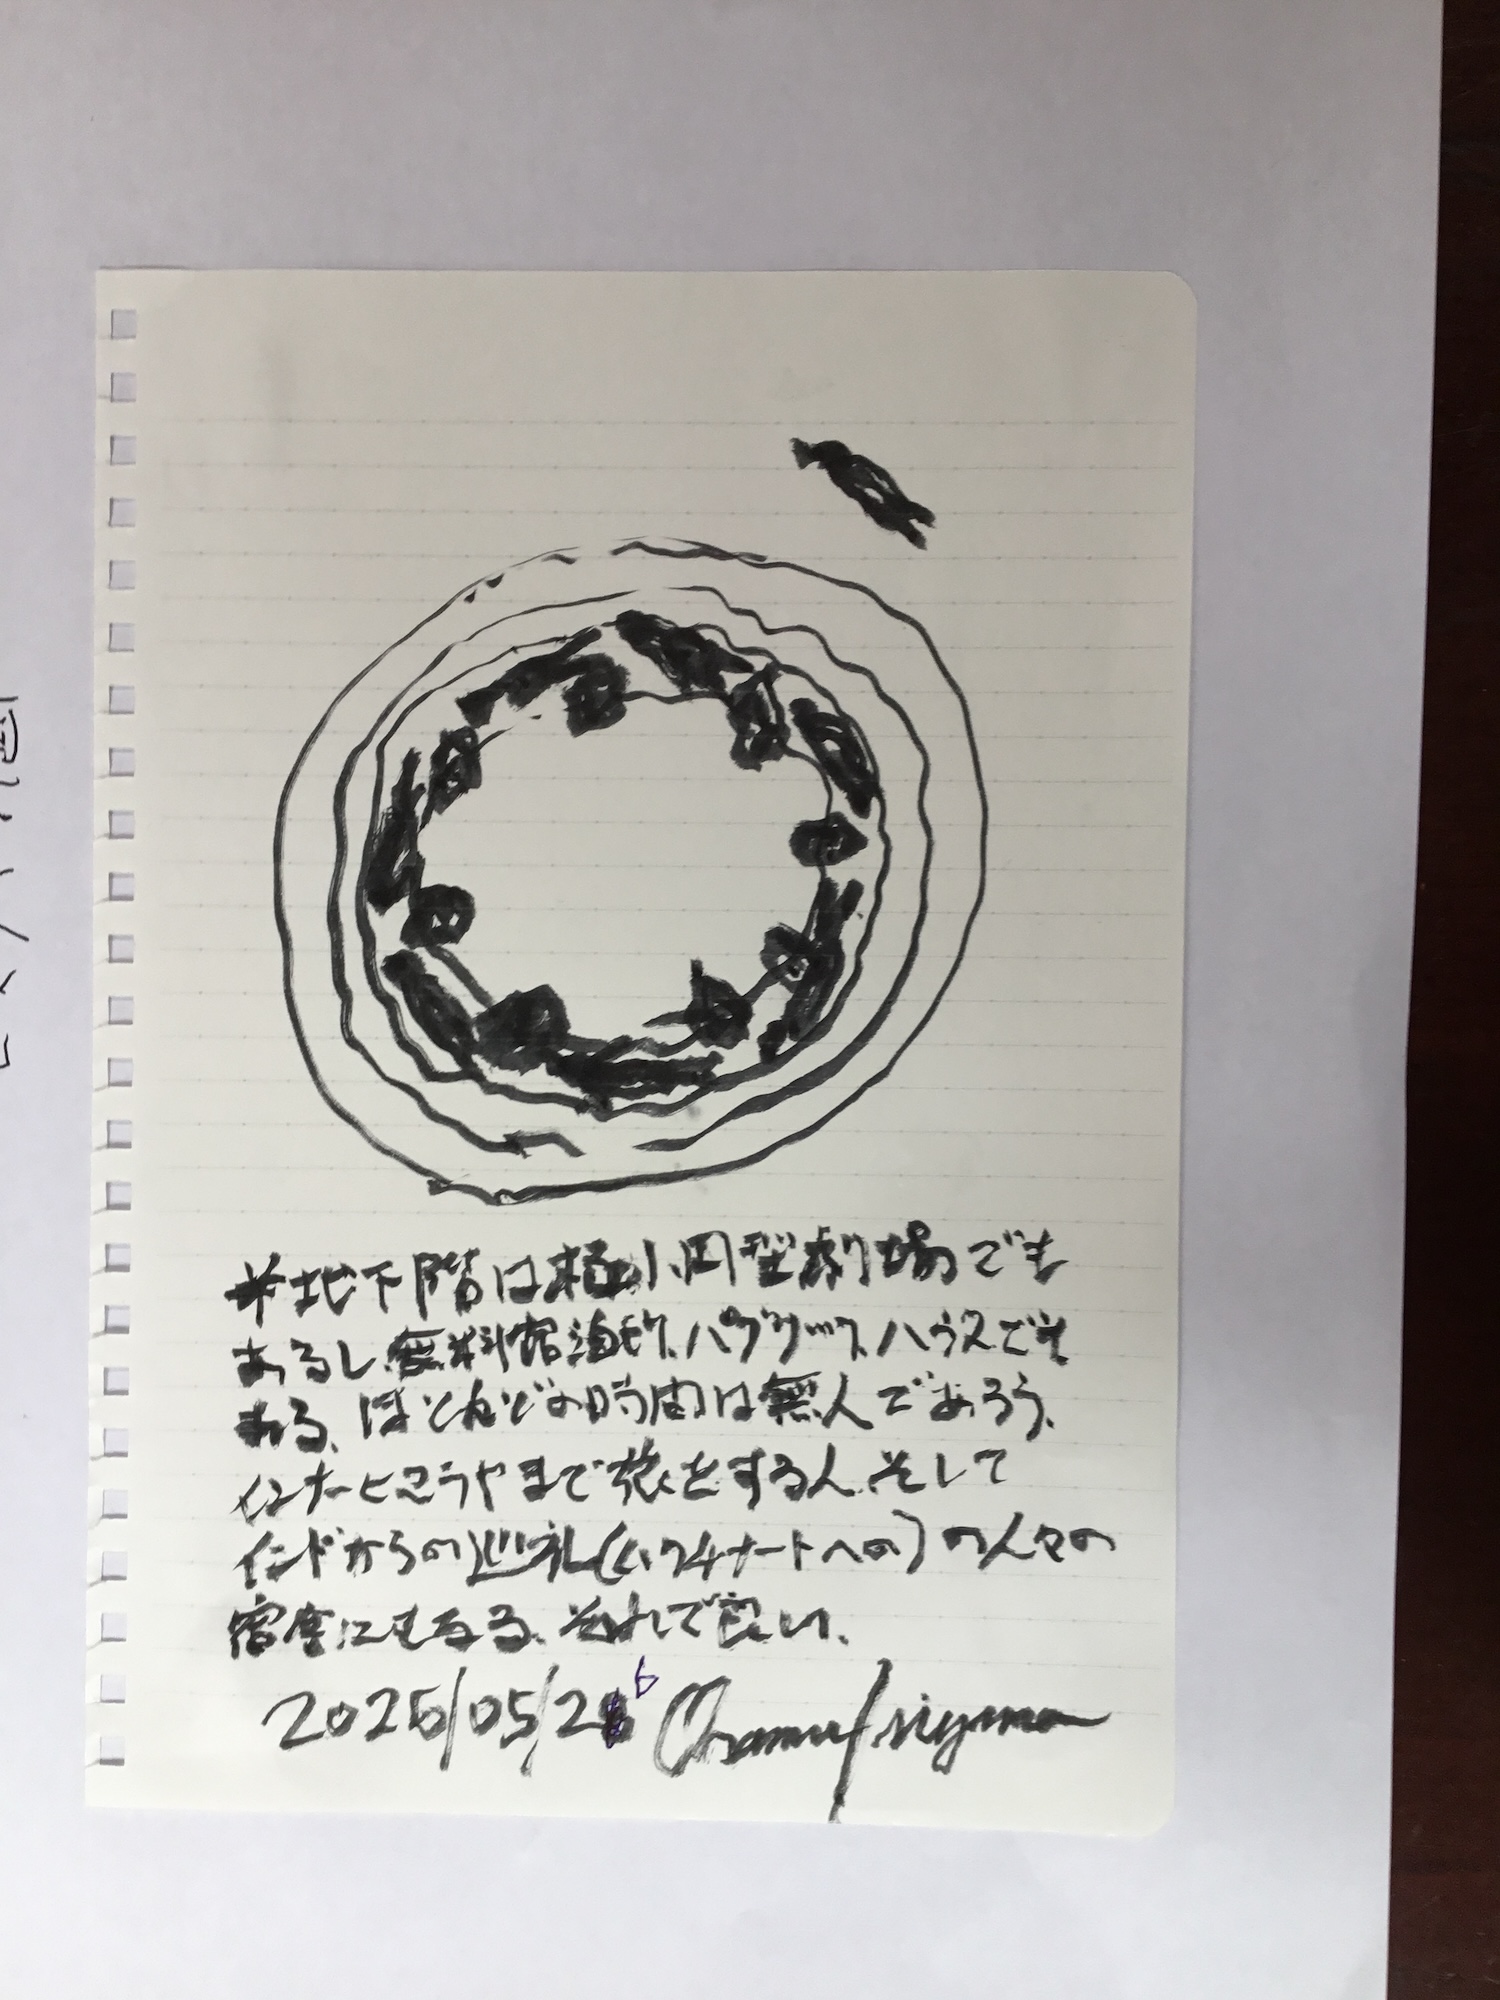 *地下階は極小円型劇場でも
あるし、無料宿泊所、パブリックハウスでも
ある、ほとんどの時間は無人であろう、
インナーヒマラヤまで旅をする人、そして
インドからの巡礼(ムクチナートへの)の人々の
宿舎にもなる、それで良い、
2026/05/26